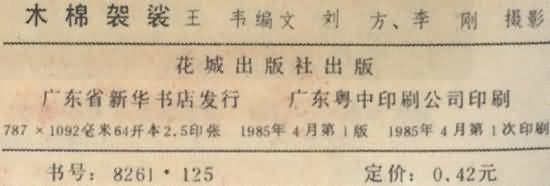 木棉袈裟 王 韦编文 刘 方、李 刚 摄影
花城出版社出版
广东省新华书店发行 广东粤中印刷公司印刷
787×1092毫米64开本2.5印张 1985年4月第1版 1985年4月第1次印刷
书号：8261·125 定价：0.42元